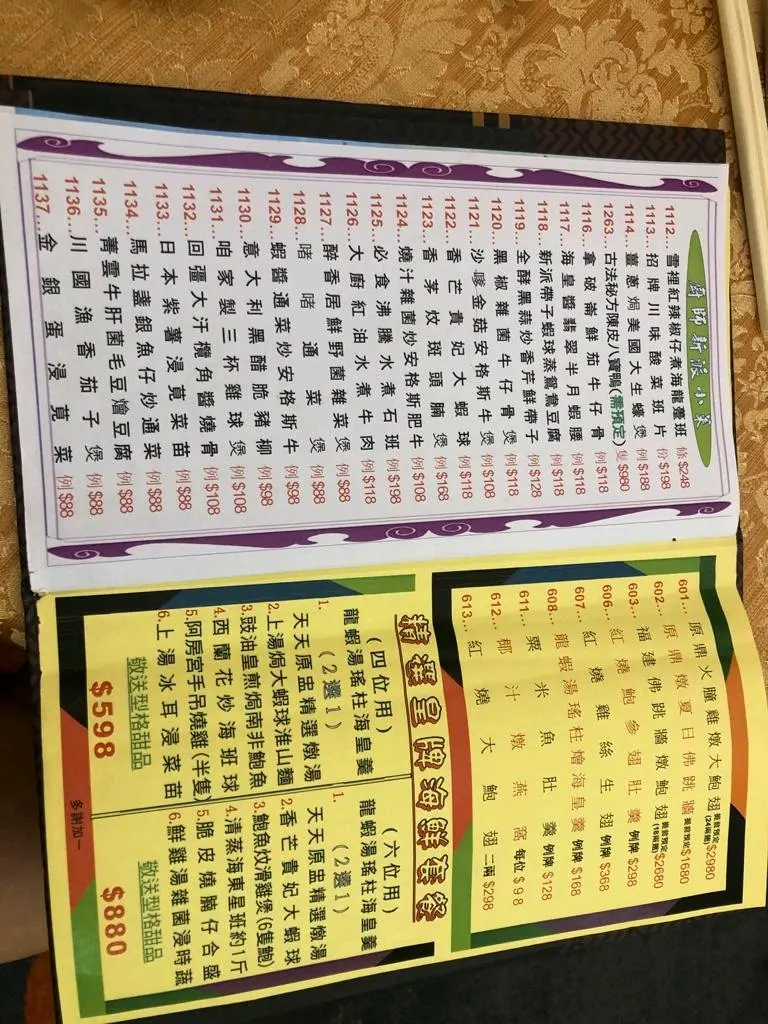 廚師新派小菜
1112...雪裡紅辣椒仔煮海龍躉班 條 $248
1113...招牌川味酸菜班片 份 $198
1114...薑蔥焗美國大生蠔煲 例 $188
1263...古法秘方陳皮八寶鴨(需預定) 隻 $980
1116...拿破崙鮮茄牛仔骨 例 $118
1117...海皇醬翡翠半月蝦腰 例 $118
1118...新派帶子蝦球蒸鴛鴦豆腐
1119...金酵黑蒜炒香芹鮮帶子 例 $128
1120...黑椒雜菌牛仔骨煲 例 $118
1121...沙嗲金菇安格斯牛煲 例 $108
1122...香芒貴妃大蝦球 例 $118
1123...香茅炆班頭腩煲 例 $168
1124...燒汁雜菌炒安格斯肥牛 例 $108
1125...必食沸騰水煮石班 例 $198
1126...大廚紅油水煮牛肉 例 $118
1127...醉香居鮮野菌雜菜煲 例 $88
1128...啫啫通菜煲 例 $88
1129...蝦醬通菜炒安格斯牛 例 $98
1130...意大利黑醋脆豬柳 例 $98
1131...咱家製三杯雞球煲 例 $108
1132...回疆大汗欖角醬燒骨 例 $108
1133...日本紫薯浸莧菜苗 例 $98
1134...馬拉盞銀魚仔炒通菜 例 $88
1135...菁雲牛肝菌毛豆燴豆腐 例 $88
1136...川國漁香茄子煲 例 $88
1137...金銀蛋浸莧菜 例 $88
601...原鼎火膧雞燉大鮑翅 提前預定(24兩翅) $2980
602...原鼎燉夏日佛跳牆 提前預定 $1680
603...福建佛跳牆燉鮑翅 提前預定(18兩翅) $2680
606...紅燒鮑參翅肚羹 例牌 $298
607...紅燒雞絲生翅 例牌 $368
608...龍蝦湯瑤柱燴海皇羹 例牌 $168
611...粟米魚肚羹 例牌 $128
612...椰汁燉燕窩 每位 $98
613...紅燒大鮑翅 二兩 $298
精選皇牌海鮮套餐
(四位用)
龍蝦湯瑤柱海皇羹
1. (2選1)
天天原盅精選燉湯
2.上湯焗大蝦球淮山麵
3.豉油皇煎焗南非鮑魚
4.西蘭花炒海班球
5.阿房宮手吊燒雞(半隻)
6.上湯冰耳浸菜苗
敬送型格甜品
$598
(六位用)
龍蝦湯瑤柱海皇羹
1. (2選1)
天天原盅精選燉湯
2.香芒貴妃大蝦球
3.鮑魚炆滑雞煲(6隻鮑)
4.清蒸海東星班約1斤
5.脆皮燒腩仔合盛
6.鮮雞湯雜菌浸時蔬
敬送型格甜品
$880
多謝加一